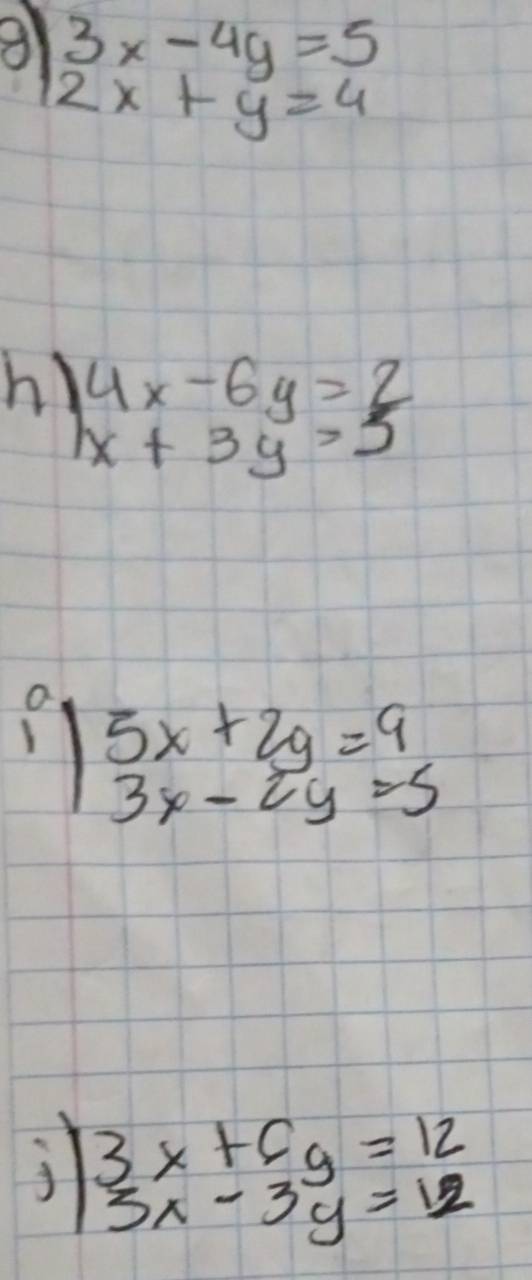 g) 3x - 4y = 5
2x + y = 4
h) 4x - 6y = 2
x + 3y = 5
i) 5x + 2y = 9
3x - 2y = 5
j) 3x + 6y = 12
3x - 3y = 12